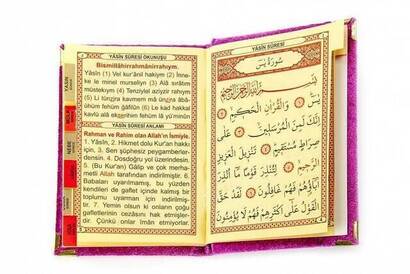 YÂSÎN SÛRESİ OKUNUŞU
Bismillâhirrahmânirrahıym.
Yâsîn (1) Vel kur'ânil hakiym (2) İnne-
ke le minel murseliyn (3) Alâ sırâtın
müstekıym (4) Tenziylel azizir rahıym
(5) Li tünzira kavmem mâ ünzira âbâ-
ühüm fehüm ğâfilûn (6) Le kad hakkal
kavlü alâ ekserihim fehüm lâ yü'minûn
YÂSÎN SÛRESİ ANLAMI
Rahman ve Rahim olan Allah'ın İsmiyle.
1. Yâsîn, 2. Hikmet dolu Kur'an hakkı
için, 3. Sen şüphesiz peygamberler-
densin. 4. Dosdoğru yol üzerindesin.
5. (Bu Kur'an) Gâlip ve çok merha-
metli Allah tarafından indirilmiştir. 6.
Babaları uyarılmamış, bu yüzden
kendileri de gaflet içinde kalmış bir
toplumu uyarman için indirilmiştir.
7. Yemin olsun ki onların çoğu
gafletlerinin cezasını hak etmişler-
dir. Çünkü onlar îman etmiyorlar.
YÂSİN
NEBE
YÂSÎN SÛRESİ
سُورَةُ يٰسٓ
بِسْمِ اللّٰهِ الرَّحْمٰنِ الرَّحِيمِ
يٰسٓ ﴿١﴾ وَالْقُرْاٰنِ الْحَكِيمِ ﴿٢﴾
اِنَّكَ لَمِنَ الْمُرْسَلِينَ ﴿٣﴾ عَلٰى
صِرَاطٍ مُسْتَقِيمٍ ﴿٤﴾ تَنْزِيلَ الْعَزِيزِ
الرَّحِيمِ ﴿٥﴾ لِتُنْذِرَ قَوْمًا مَٓا اُنْذِرَ
اٰبَٓاؤُهُمْ فَهُمْ غَافِلُونَ ﴿٦﴾ لَقَدْ حَقَّ
الْقَوْلُ عَلٰٓى اَكْثَرِهِمْ فَهُمْ لَا يُؤْمِنُونَ